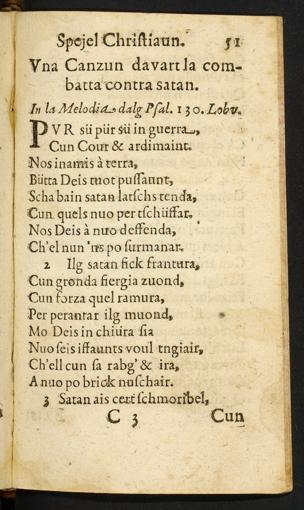 Spejel Chriſtiaun. 51
Vna Canzun davart la com-
batta contra satan.
In la Melodia dalg Pſal. 130. Lobv.
PVR sü pür sü in guerra,
Cun Cour & ardimaint.
Nos inamis à terra,
Bütta Deis tuot puſſaunt,
Scha bain satan latſchs tenda,
Cun quels nuo per tſchüffar.
Nos Deis à nuo deffenda,
Ch'el nun 'ns po ſurmanar.
2 Ilg satan fick frantura,
Cun gronda ſiergia zuond,
Cun forza quel ramura,
Per perantar ilg muond,
Mo Deis in chiüra ſia
Nuo ſeis iffaunts voul tngiair,
Ch'ell cun ſa rabg' & ira,
A nuo po brick nuſchair.
3 Satan ais cert ſchmoribel,
C 3 Cun